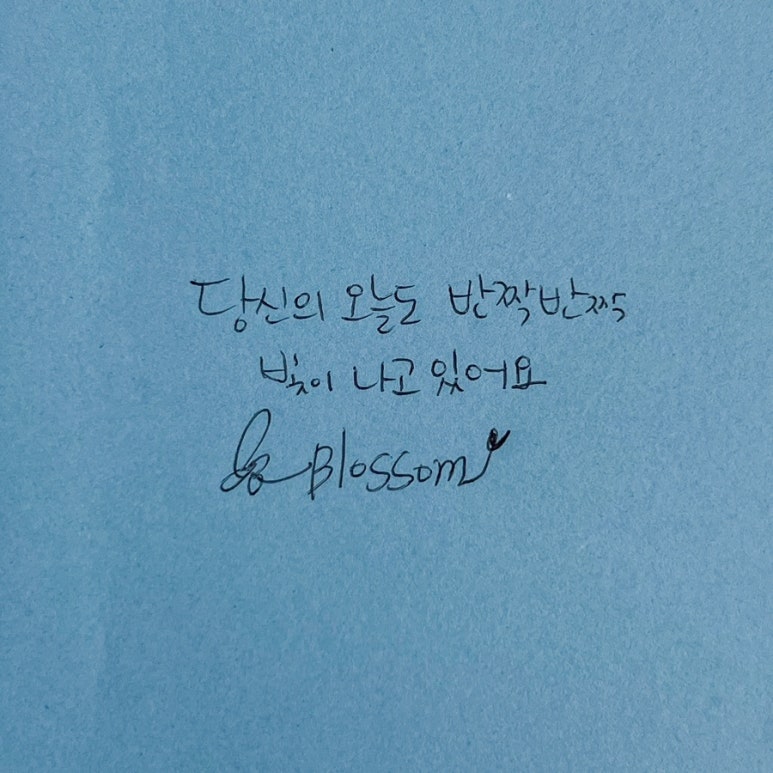 당신의 오늘도 반짝반짝
빛이 나고 있어요
Blossom